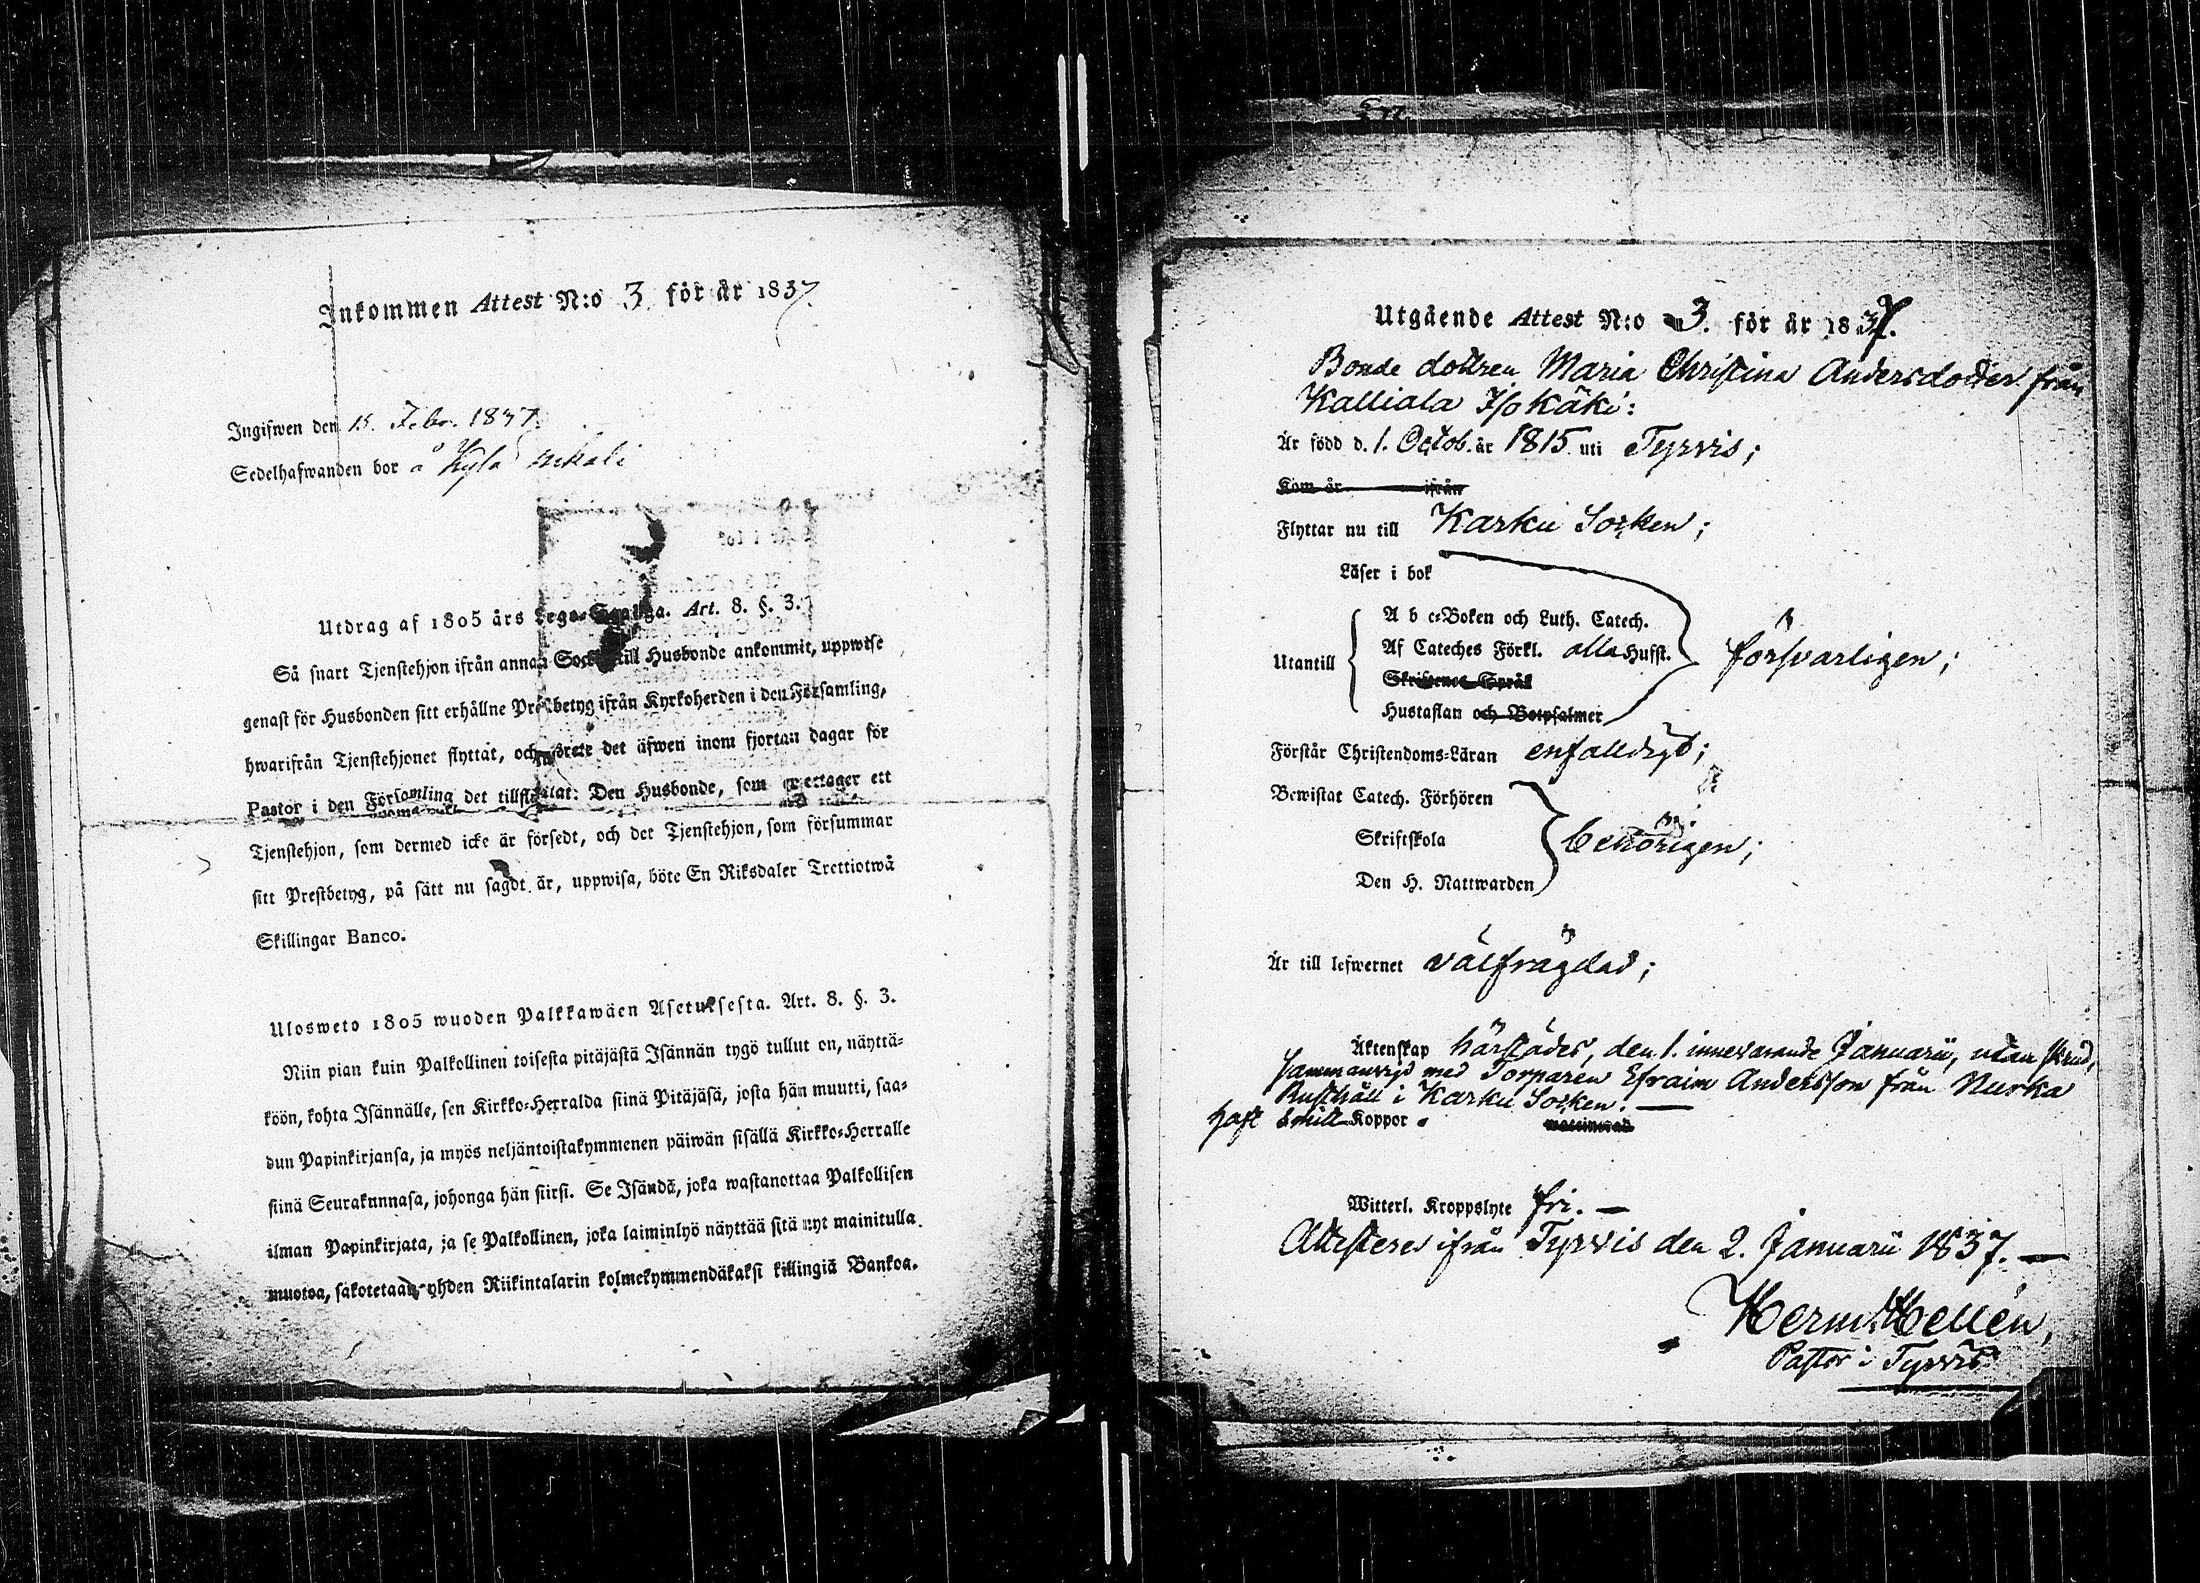 Inkommen Attest N:o 3 för år 1837.
Ingifwen den 15. Febr. 1837.
Sedelhafwanden bor å Kyla
Utdrag af 1805 års Lego-Stadga. Art. 8. §. 3.
Så snart Tjenstehjon ifrån annan Socken till Husbonde ankommit, uppwise
genast för Husbonden sitt erhållne Prestbetyg ifrån Kyrkoherden i den Församling,
hwarifrån Tjenstehjonet flyttat, och det äfwen inom fjortan dagar för
Pastor i den Församling det tillflyttat: Den Husbonde, som emottager ett
Tjenstehjon, som dermed icke är försedt, och det Tjenstehjon, som försummar
sitt Prestbetyg, på sätt nu sagdt är, uppwisa, böte En Riksdaler Trettiotwå
Skillingar Banco.
Ulosweto 1805 wuoden Palkkawäen Asetuksesta. Art. 8. §. 3.
Niin pian kuin Palkollinen toisesta pitäjästä Isännän tygö tullut on, näyttä-
köön, kohta Isännälle, sen Kirkko-Herralda siinä Pitäjäsä, josta hän muutti, saa-
dun Papinkirjansa, ja myös neljäntoistakymmenen päiwän sisällä Kirkko-Herralle
siinä Seurakunnasa, johonga hän siirsi. Se Isändä, joka wastanottaa Palkollisen
ilman Papinkirjata, ja se Palkollinen, joka laiminlyö näyttää sitä nyt mainitulla
muotoa, sakotetaan yhden Riikintalarin kolmekymmendäkaksi killingiä Bankoa.
Utgående Attest N:o 3. för år 1837.
Bonde dottren Maria Christina Andersdotter från
Kalliala Iso Käki:
Är född d. 1. Octob. år 1815 uti Tyrvis;
Kom år ifrån
Flyttar nu till Karku Socken;
Läser i bok
A b c-Boken och Luth. Catech.
Utantill Af Cateches Förkl. alla Hufst. försvarligen;
Skriftenes Språk
Hustaflan och Botpsalmer
Förstår Christendoms-Läran enfalldigt;
Bewistat Catech. Förhören
Skriftskola behörigen;
Den H. Nattwarden
Är till lefwernet välfrägdad;
Äktenskap härstädes, den 1. innevarande Januarii, utan skrud,
sammanvigd med Torparen Efraim Andersson från Nurka
Rusthåll i Karku Socken.
haft Smitt-Koppor.
Witterl. Kroppslyte fri.
Attesteres ifrån Tyrvis den 2. Januarii 1837.
Herm. Hellén,
Pastor i Tyrvis